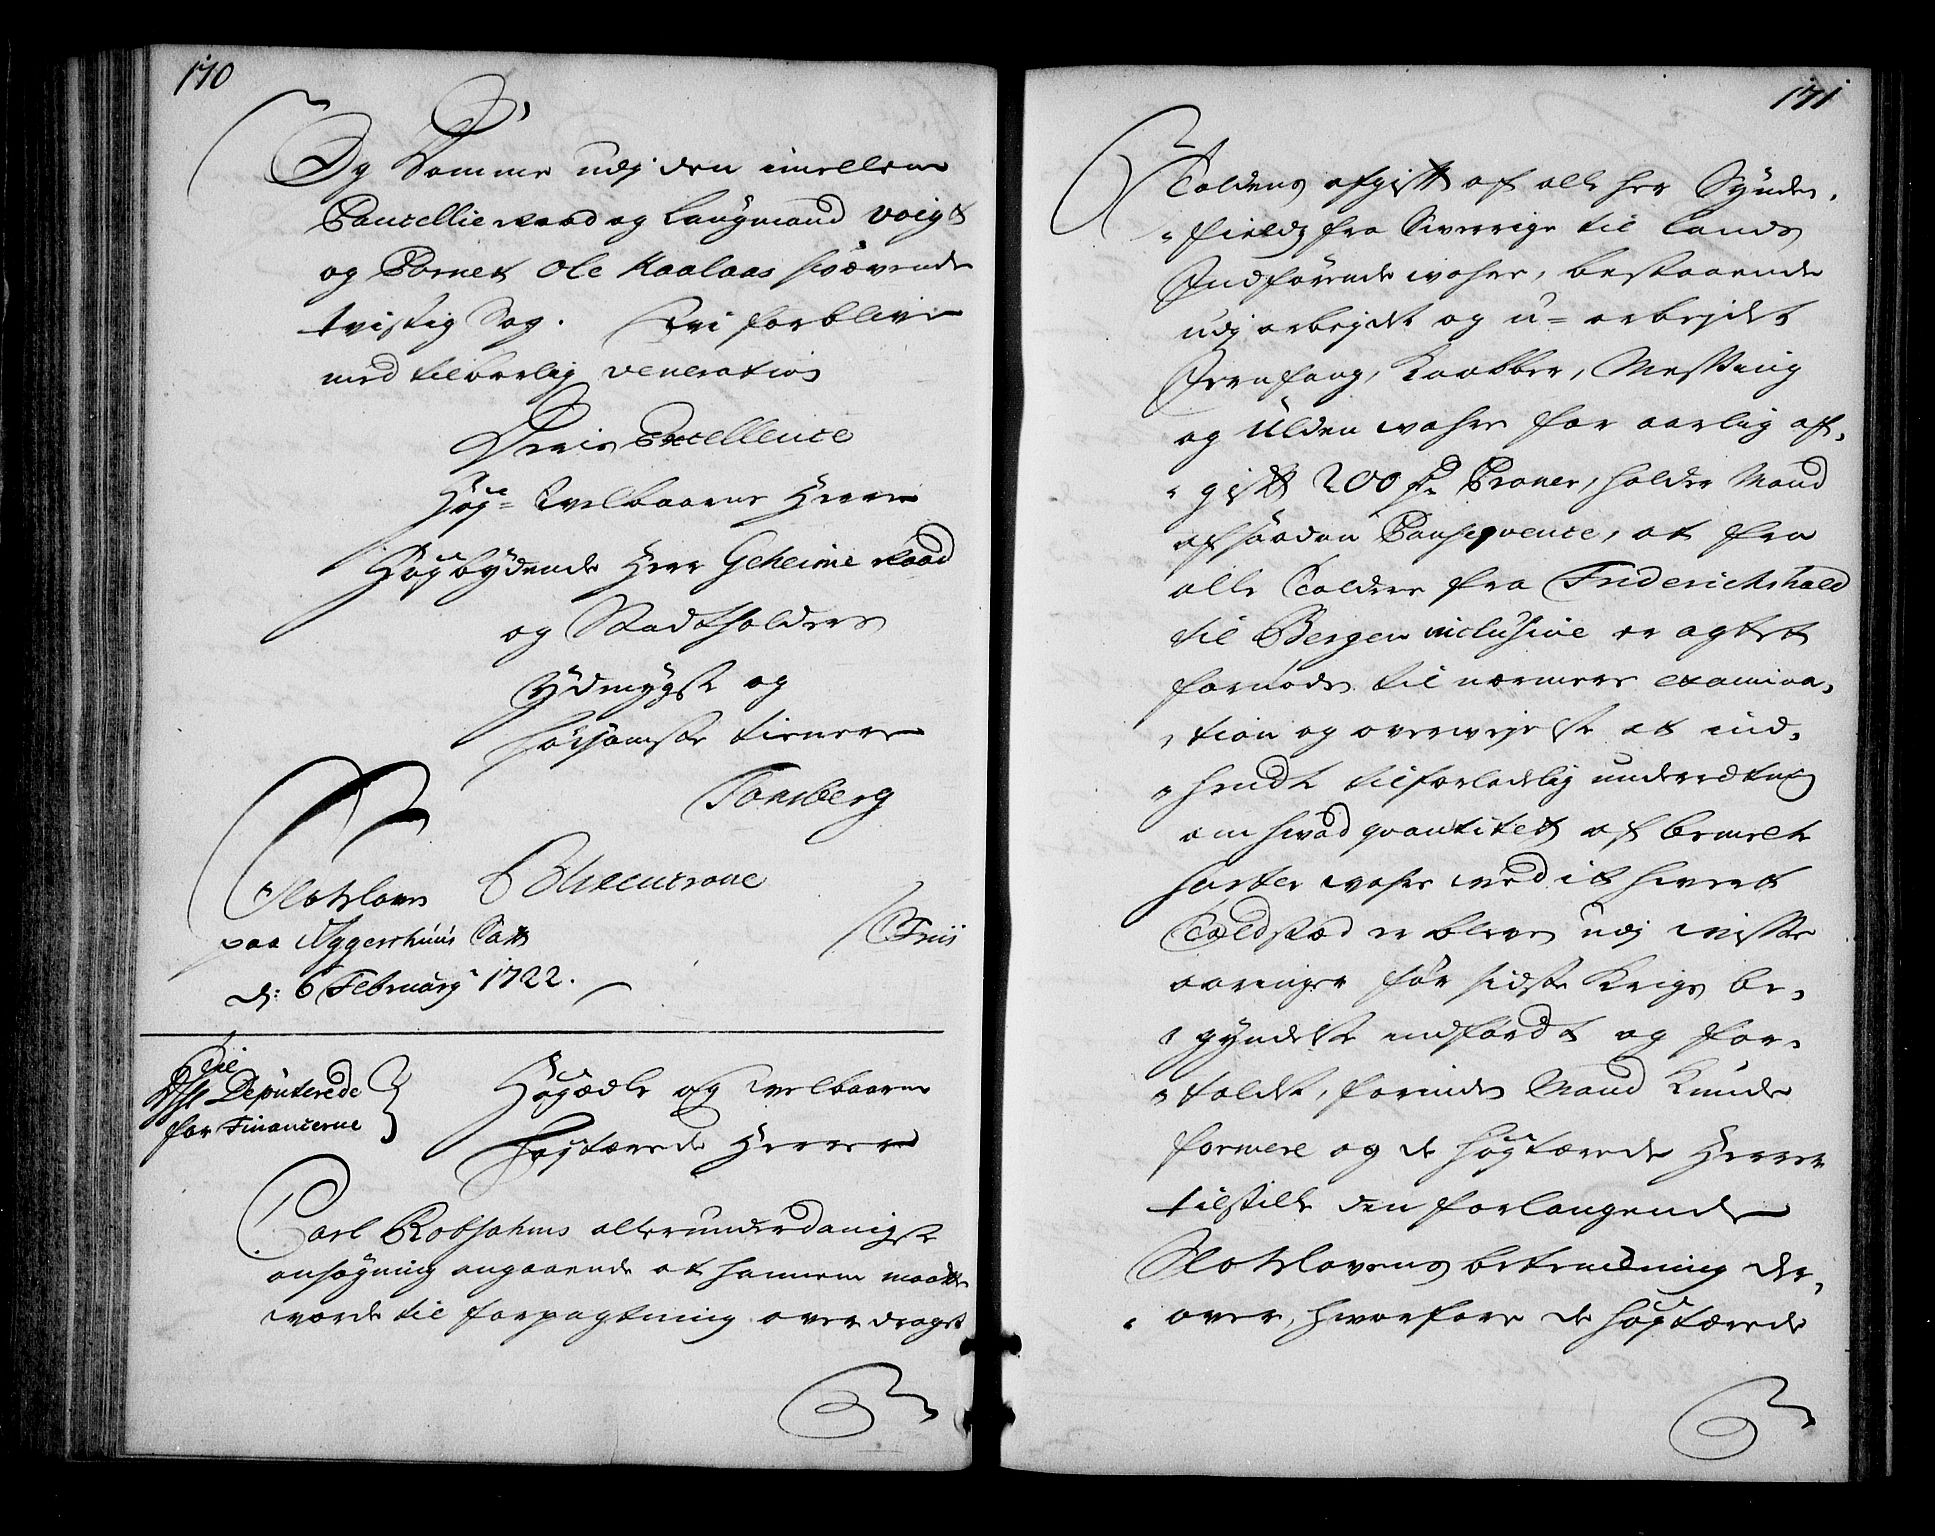 170
Og Domme udj den imellem
Cancellieraad og Laugmand Voigt
og Cornet Ole Kaalaas svævende
tvistig Sag. Vi forblive
med tilbørlig veneration
Deris Excellence
Høy= Welbaarne Herre
Høybydende Herr Geheime Raad
og Stadtholders
Ydmygste og
hørsomste tienere
Tonsberg
Slotzloven
paa Aggershuus Cast
d: 6 February 1722.
Blixencrone
CFriis
Til
De Deputerede
for Financerne
Høyædle og Welbaarne
Høytærede Herrer
Carl Robsahms allerunderdanigste
ansøgning angaaende at hannem maatte
vorde til forpagtning overdraget
171
Toldens afgift af alle her Synden,
„fields fra Sverrige til Lands
Indførende wahre, bestaaende
udj arbejdet og u=arbejdet
Jernfang, Kaabber, Messing
og Ulden wahre for aarlig af,
„gift 200 Rdr Croner, holder Mand
af saadan Consequence, at fra
alle Tolderne fra Friderichshald
til Bergen inclusive er agtet
fornøden til nærmere examina,
„tion og overvejelse at ind,
„hendte tilforladelig underretning
om hvad quantitet af bemelte
sorter wahre ved it hvert
Toldsted er bleven udj visse
aaringer før sidste Krigs be,
„gyndelse indført og for,
„toldet, forinden Mand kunde
formere og de høytærede Herrer
tilstille den forlangende
Slotzlovens betenkning der,
„over, hvorfore de høytærede